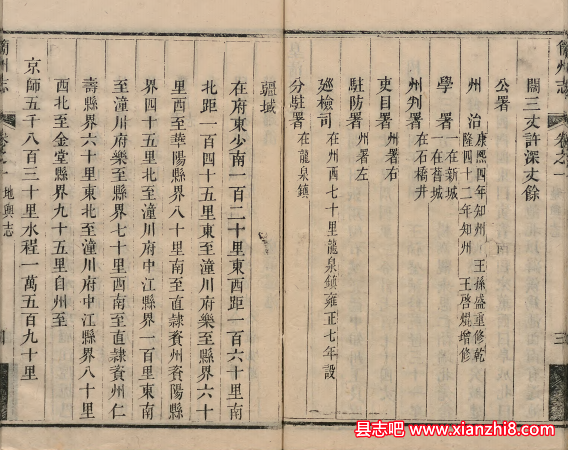 簡州志
卷之一
三
闊三丈許深丈餘
公署
州治 康熙四年知州王孫盛重修乾
隆四十二年知州王啓焜增修
學署 一在新城
一在舊城
州判署 在石橋井
吏目署 州署右
駐防署 州署左
廵檢司 在州西七十里龍泉鎮雍正七年設
分駐署 在龍泉鎮
疆域
在府東少南一百二十里東西距一百六十里南
北距一百四十五里東至潼川府樂至縣界六十
里西至華陽縣界八十里南至直隸資州資陽縣
界四十五里北至潼川府中江縣界一百里東南
至潼川府樂至縣界七十里西南至直隸資州仁
壽縣界六十里東北至潼川府中江縣界八十里
西北至金堂縣界九十五里自州至
京師五千八百三十里水程一萬五百九十里
簡州志
卷之一
地輿志
四
县志吧 www.xianzhi8.com